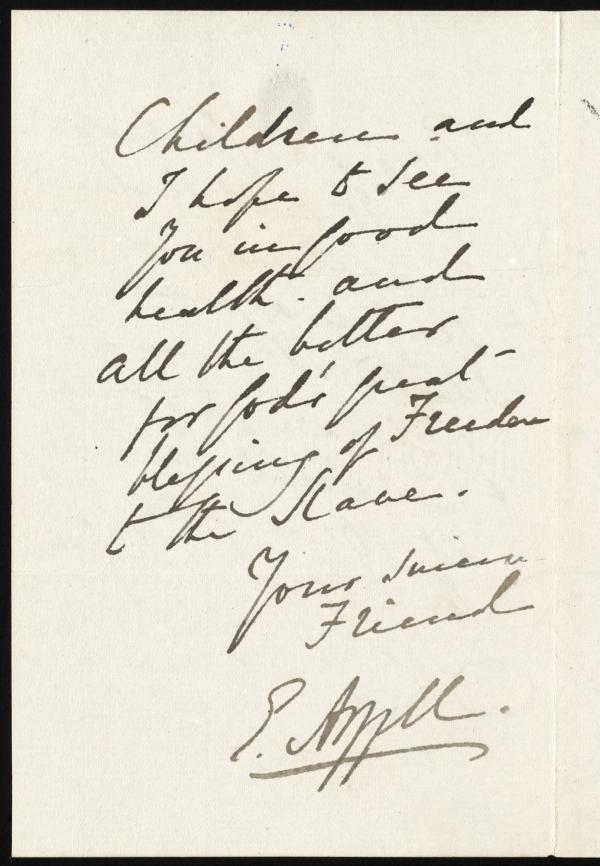 Children and
I hope to see
You in good
health - and
all the better
for God's great
blessing of Freedom
to the Slave.
Your sincere
Friend
E. Argyll.